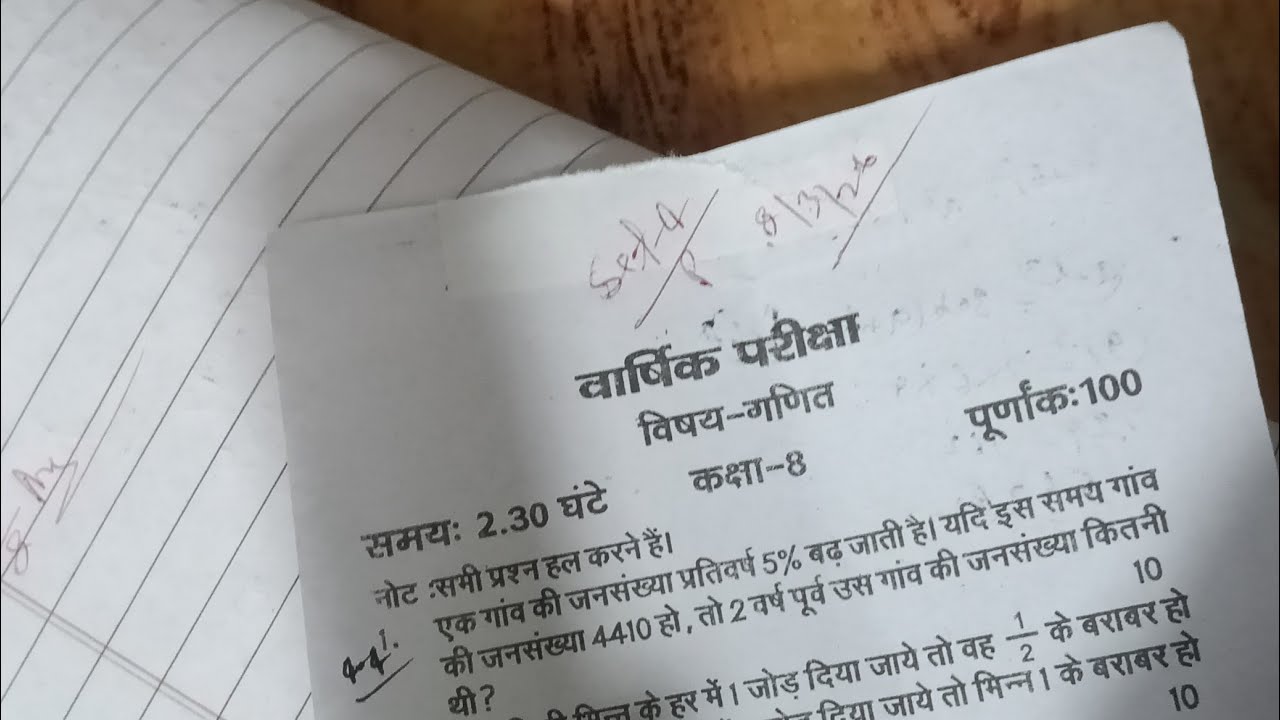 Set-A
8/3/20
वार्षिक परीक्षा
विषय-गणित
पूर्णांक:100
कक्षा-8
समय: 2.30 घंटे
नोट :सभी प्रश्न हल करने हैं।
1. एक गांव की जनसंख्या प्रतिवर्ष 5% बढ़ जाती है। यदि इस समय गांव
की जनसंख्या 4410 हो, तो 2 वर्ष पूर्व उस गांव की जनसंख्या कितनी
थी? 10
के हर में 1 जोड़ दिया जाये तो वह 1/2 के बराबर हो
दिया जाये तो भिन्न 1 के बराबर हो
10